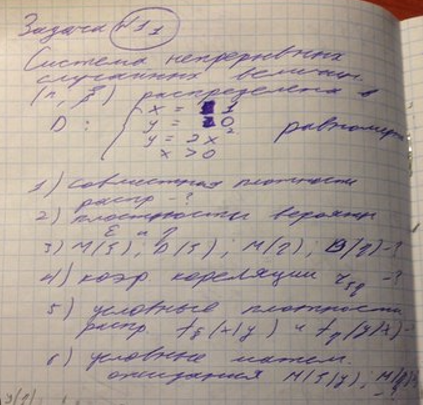 Задача №11
Система непрерывных
случайных величин
(η, ξ) распределена в
x = 1
D : y = 0 равномерно
y = 2x²
x > 0
1) совместная плотность
распр - ?
2) плотности вероятн
ξ и η
3) M(ξ); D(ξ); M(η); D(η) - ?
4) коэр кореляции r ξη - ?
5) условные плотности
распр f ξ (x/y) и f η (y/x) -
6) условные матем.
ожидания M(ξ/y); M(η/x)